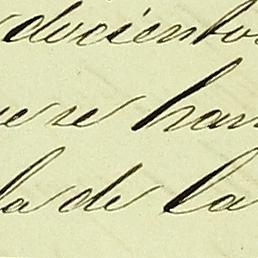 docientos
se han
la de la